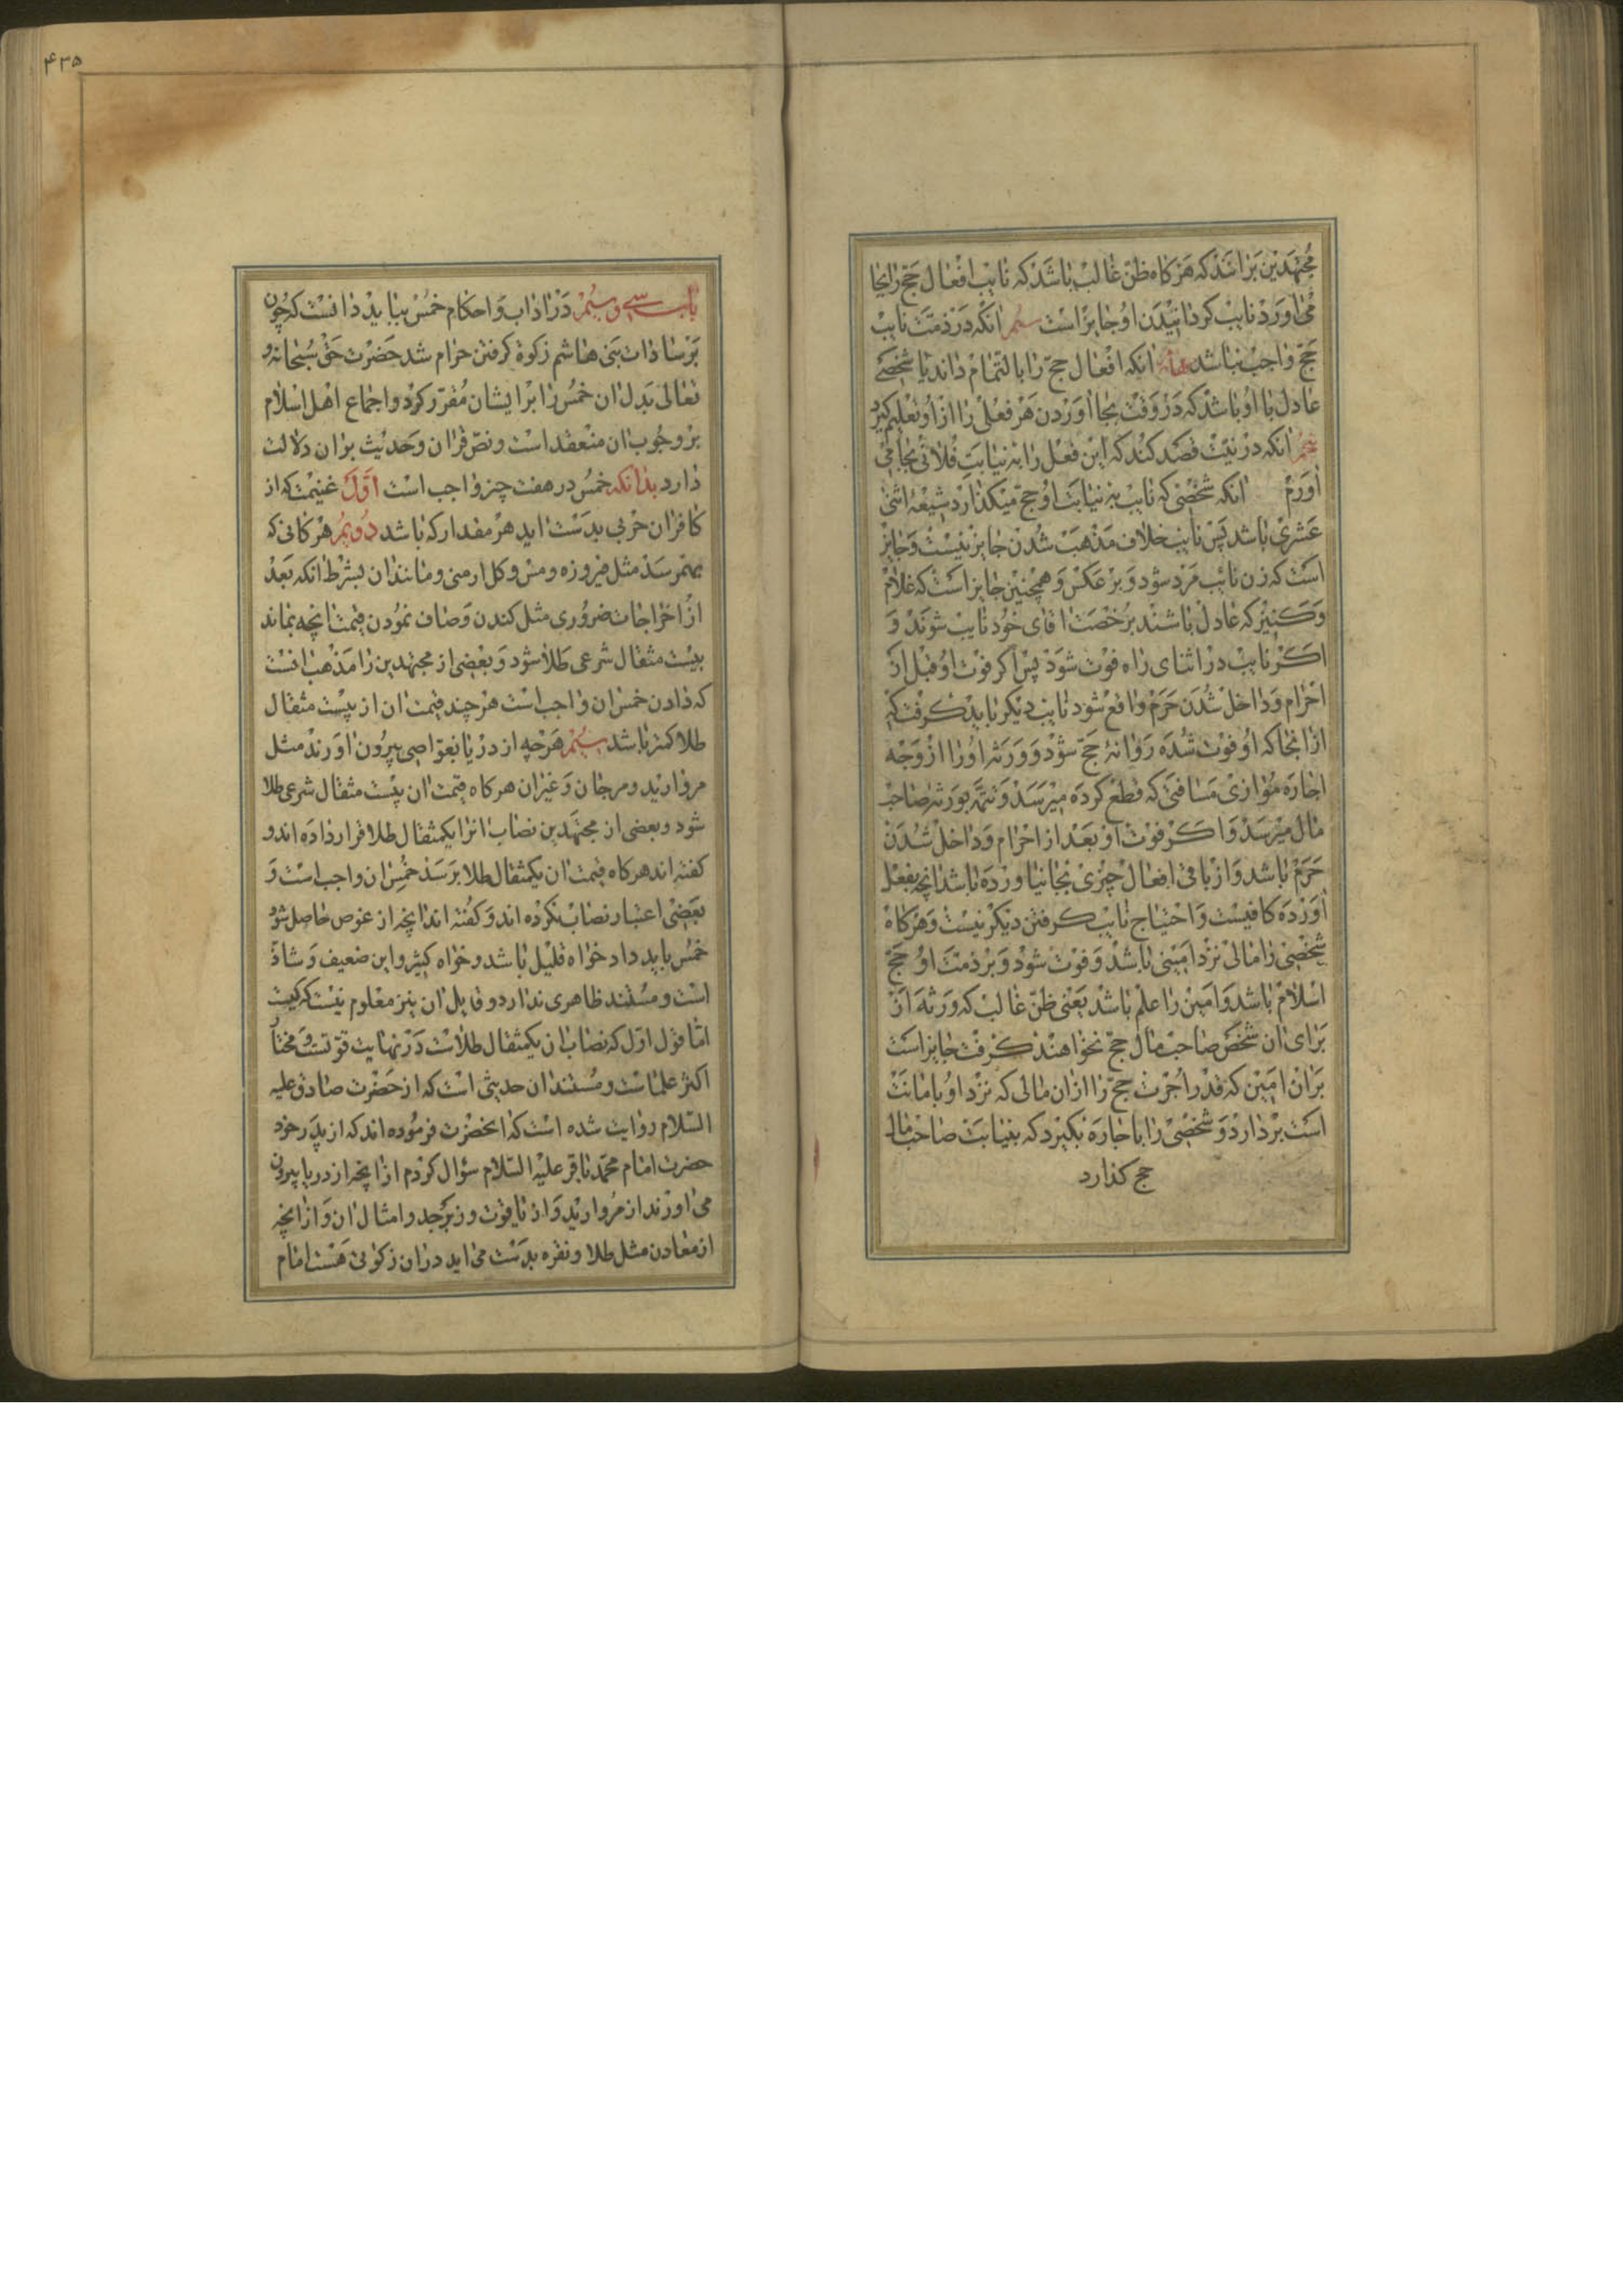 مجتهدین برانند که هرکاه ظن غالب باشد که نایب افعال حج را بجا
می اورد نایب کردانیدن او جایز است سیم انکه در ذمت نایب
حج واجب نباشد انکه افعال حج را بالتمام داند یا شخصے
عادل با او باشد که در وقت بجا اوردن هر فعلی را از او تعلیم کیرد
پنجم انکه در نیت قصد کند که این فعل را به نیابت فلانی بجا می
اورم انکه شخصی که نایب به نیابت او حج میکذارد شیعه اثنی
عشری باشد پس نایب خلاف مذهب شدن جایز نیست و جایز
است که زن نایب مرد شود و بر عکس و همچنین جایز است که غلام
و کنیز که عادل باشند برخصت اقای خود نایب شوند و
اکر نایب در اثنای راه فوت شود پس اکر فوت او قبل از
احرام و داخل شدن حرم واقع شود نایب دیکر باید کرفت که
از انجا که او فوت شده روانهٔ حج شود و ورثه او را از وجه
اجاره موازی مسافتی که قطع کرده میرسد و تتمه بورثه صاحب
مال میرسد و اکر فوت او بعد از احرام و داخل شدن
حرم باشد و از باقی افعال چیزی بجا نیاورده باشد انچه بفعل
اورده کافیست و احتیاج نایب کرفتن دیکر نیست و هرکاه
شخصی را مالی نزد امینی باشد و فوت شود و بر ذمت او حج
اسلام باشد و امین را علم باشد یعنی ظن غالب که ورثه از
برای ان شخص صاحب مال حج نخواهند کرفت جایز است
بران امین که قدر اجرت حج را از ان مالی که نزد او بامانت
است بردارد و شخصی را باجاره بکیرد که بنیابت صاحب مال
حج کذارد
۴۳۵
باب سی و سیم در اداب و احکام خمس بباید دانست که چون
بر سادات بنی هاشم زکوة کرفتن حرام شد حضرت حق سبحانه و
تعالی بدل ان خمس را بر ایشان مقرر کرد و اجماع اهل اسلام
بر وجوب ان منعقد است و نص قران و حدیث بران دلالت
دارد بدانکه خمس در هفت چیز واجب است اول غنیمت که از
کافران حربی بدست اید هر مقدار که باشد دویم هر کانی که
بهم رسد مثل فیروزه و مس و کل ارمنی و مانند ان بشرط انکه بعد
از اخراجات ضروری مثل کندن و صاف نمودن قیمت انچه بماند
بیست مثقال شرعی طلا شود و بعضی از مجتهدین را مذهب انست
که دادن خمس ان واجب است هر چند قیمت ان از بیست مثقال
طلا کمتر باشد سیم هرچه از دریا بغواصی بیرون اورند مثل
مروارید و مرجان و غیر ان هر کاه قیمت ان بیست مثقال شرعی طلا
شود و بعضی از مجتهدین نصاب انرا یکمثقال طلا قرار داده اند و
کفته اند هر کاه قیمت ان یکمثقال طلا برسد خمس ان واجب است و
بعضی اعتبار نصاب نکرده اند و کفته اند انچه از غوص حاصل شود
خمس باید داد خواه قلیل باشد و خواه کثیر و این ضعیف و شاذ
است و مستند ظاهری ندارد و قایل ان نیز معلوم نیست که کیست
اما قول اول که نصاب ان یکمثقال طلاست در نهایت قوتست و مختار
اکثر علماست و مستند ان حدیثی است که از حضرت صادق علیه
السلام روایت شده است که انحضرت فرموده اند که از پدر خود
حضرت امام محمد باقر علیه السلام سؤال کردم از انچه از دریا بیرون
می اورند از مروارید و از یاقوت و زبرجد و امثال ان و از انچه
از معادن مثل طلا و نقره بدست می اید در ان زکوتی هست امام